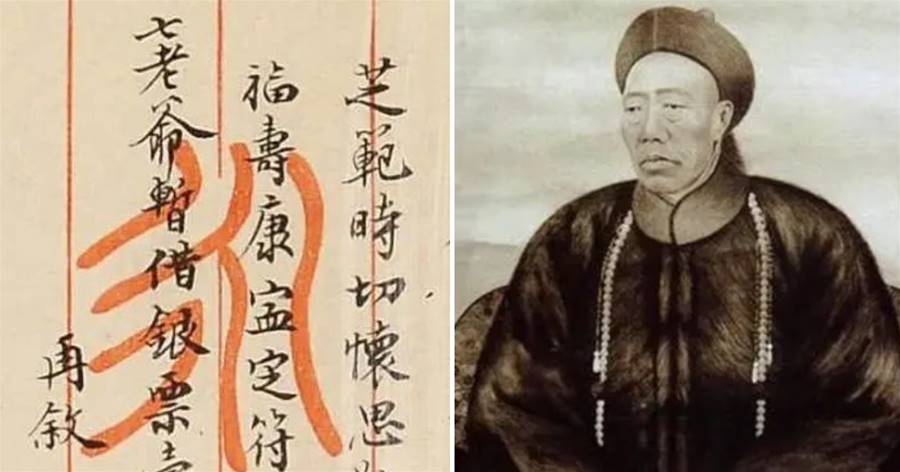 芝範時切懷思
福壽康寍定符
七老爺暫借銀票
再敘